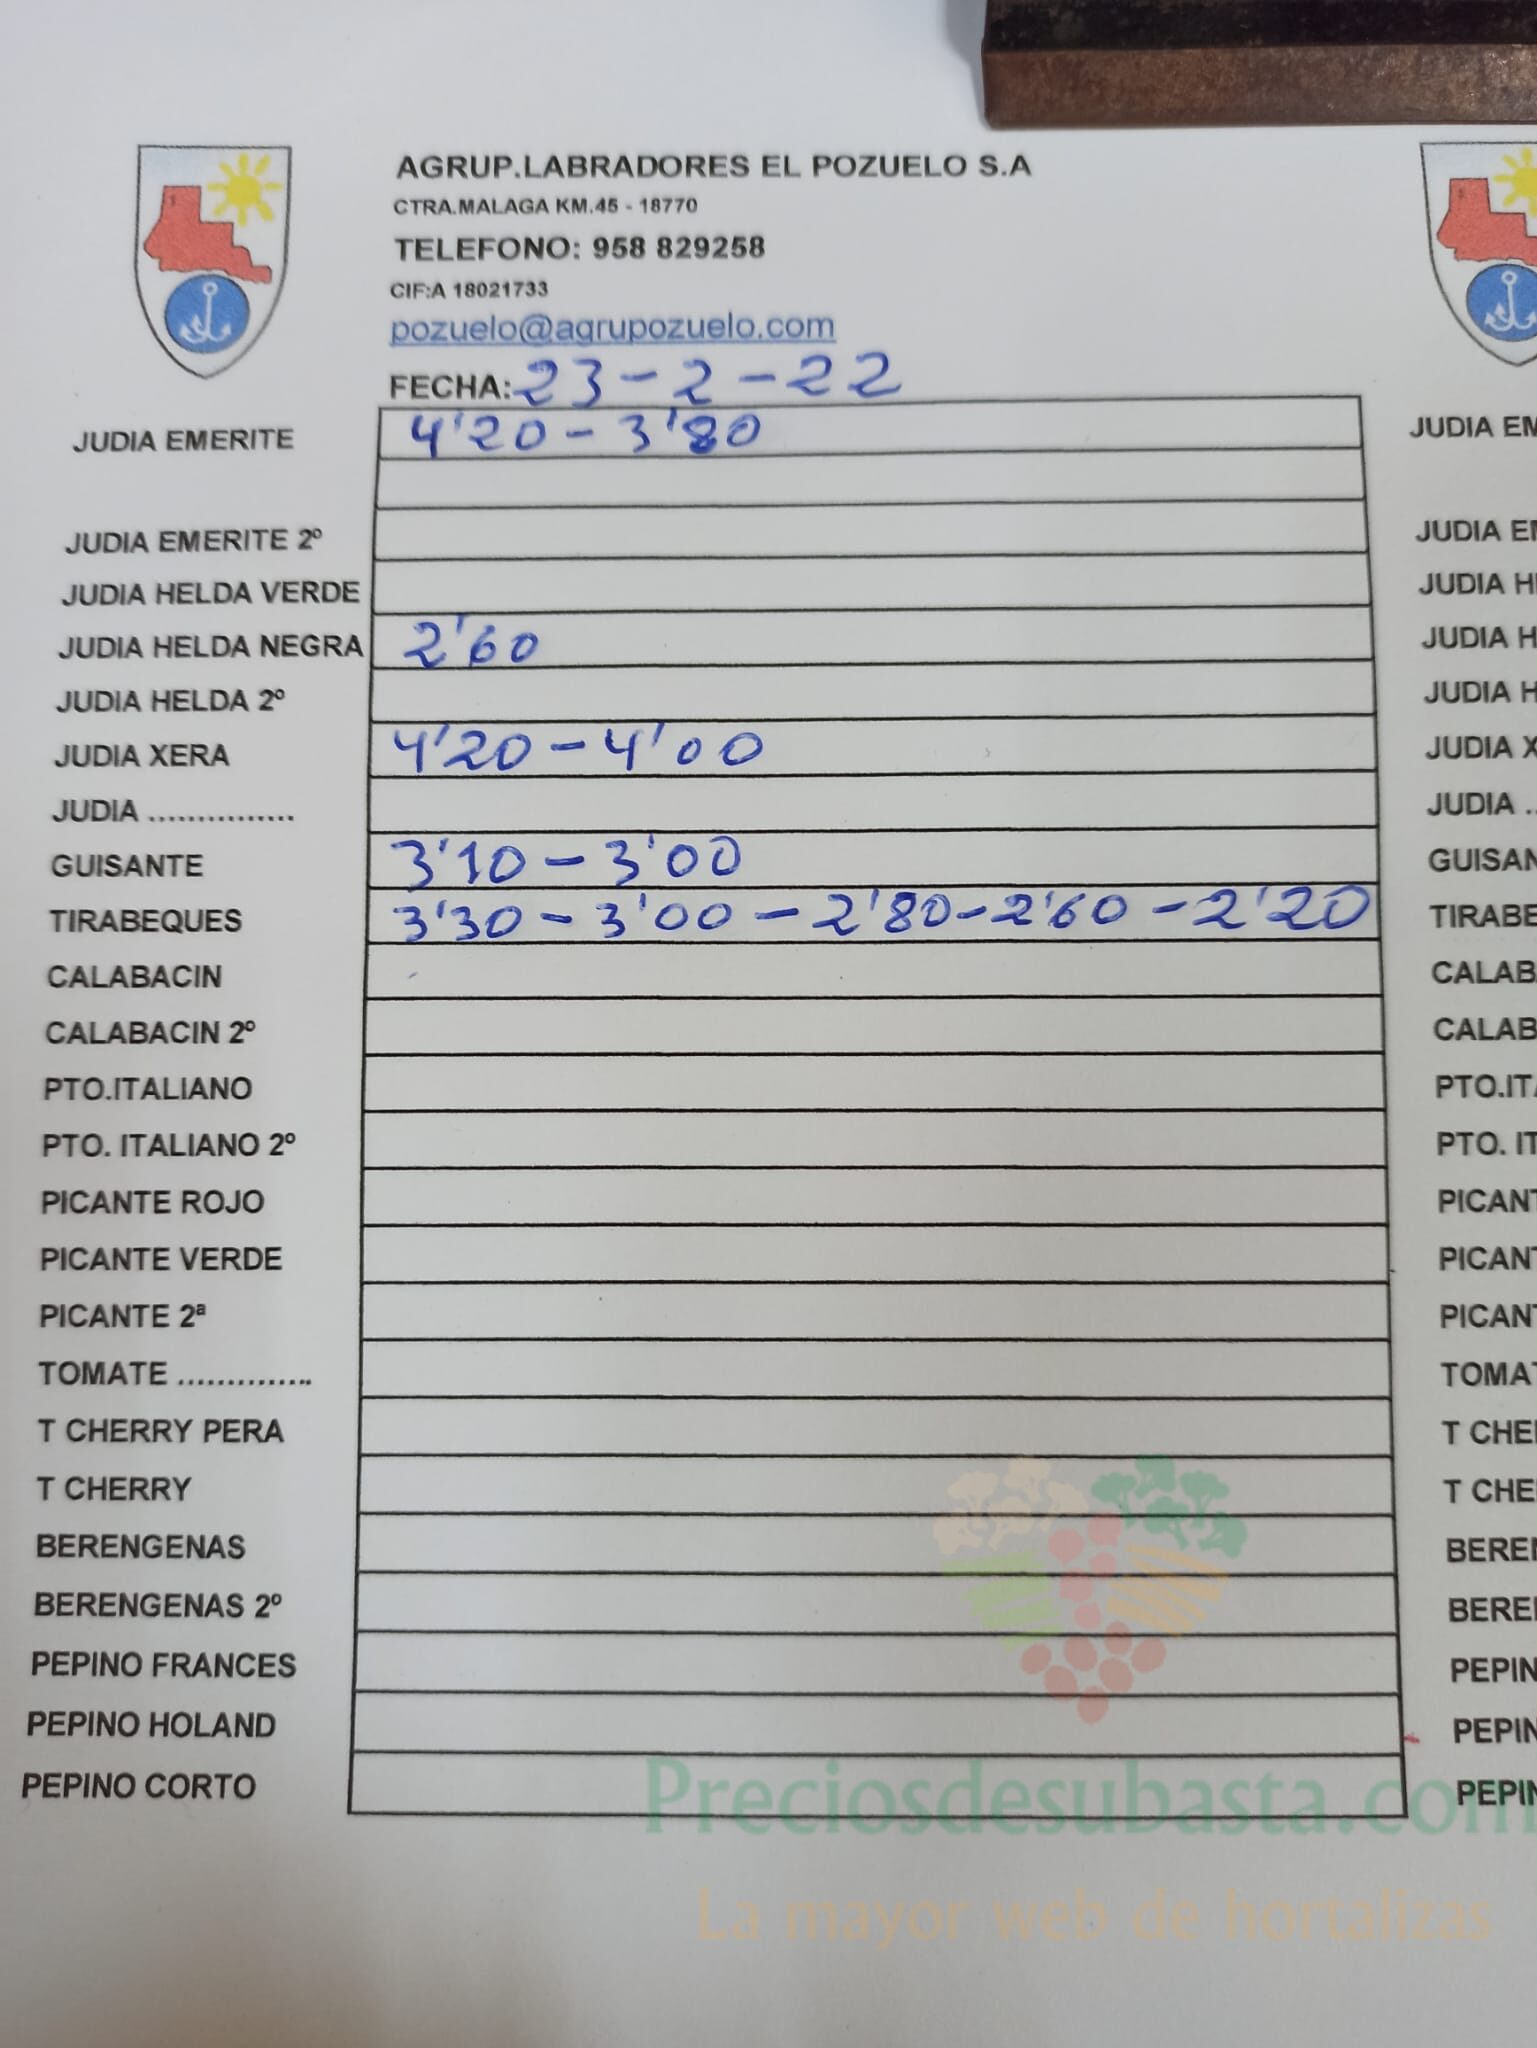 AGRUP.LABRADORES EL POZUELO S.A
CTRA.MALAGA KM.45 - 18770
TELEFONO: 958 829258
CIF:A 18021733
pozuelo@agrupozuelo.com
FECHA: 23-2-22
JUDIA EMERITE 4'20 - 3'80 JUDIA EM
JUDIA EMERITE 2º JUDIA EM
JUDIA HELDA VERDE JUDIA H
JUDIA HELDA NEGRA 2'60 JUDIA H
JUDIA HELDA 2º JUDIA H
JUDIA XERA 4'20 - 4'00 JUDIA X
JUDIA ............... JUDIA ..
GUISANTE 3'10 - 3'00 GUISAN
TIRABEQUES 3'30 - 3'00 - 2'80 - 2'60 - 2'20 TIRABE
CALABACIN CALAB
CALABACIN 2º CALAB
PTO.ITALIANO PTO.IT
PTO. ITALIANO 2º PTO. IT
PICANTE ROJO PICANT
PICANTE VERDE PICANT
PICANTE 2ª PICANT
TOMATE .............. TOMAT
T CHERRY PERA T CHE
T CHERRY T CHE
BERENGENAS BERE
BERENGENAS 2º BERE
PEPINO FRANCES PEPIN
PEPINO HOLAND PEPIN
PEPINO CORTO PEPIN
Preciosdesubasta.com
La mayor web de hortalizas